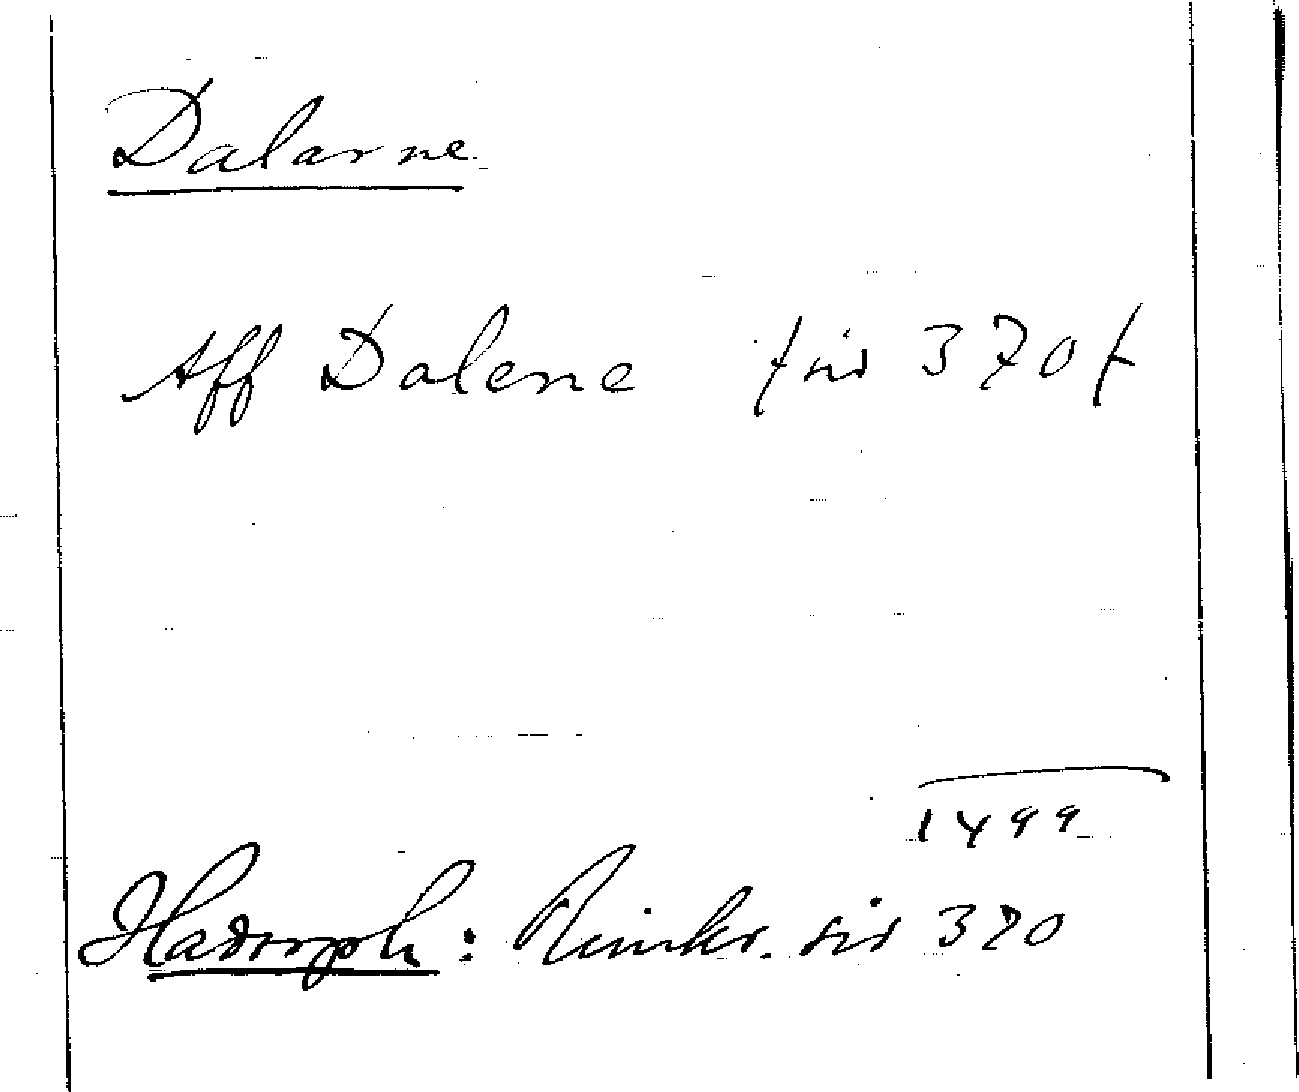 Dalarne
Aff Dalene /: sid 370 /:
1499
Hadorph: Rimkr. sid 370